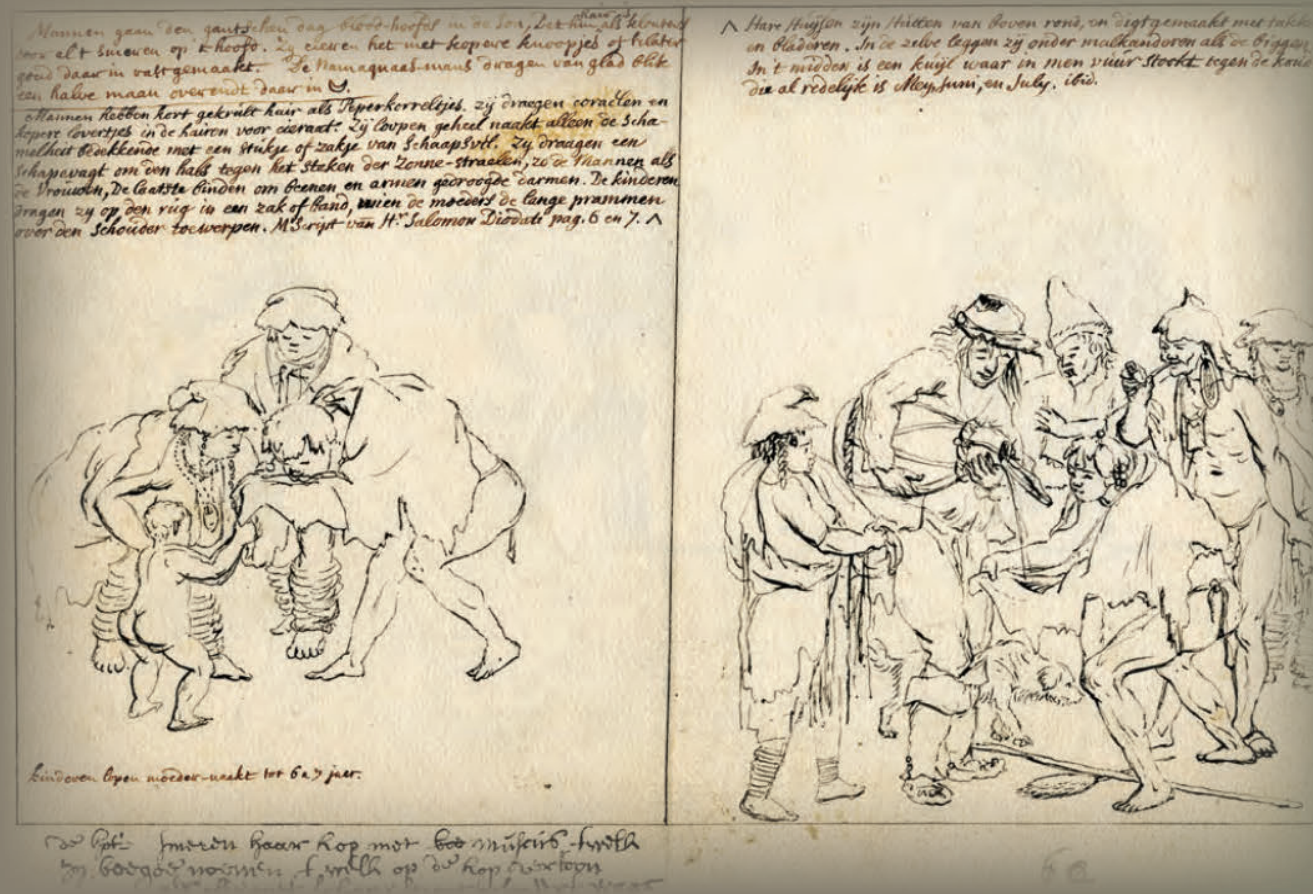 Mannen gaan den gantschen dag bloods-hoofds in de Son, Let hun hair is als klouters
door al t smeren op t hoofd. Zy cieren het met kopere knoopjes of
goud daar in vast gemaakt. De Namaquaas-mans dragen van glad blik
een halve maan overendt daar in
Mannen hebben kort gekrult hair als Peperkorreltjes. zij draegen coraelen en
kopere lovertjes in de hairen voor cieraat. Zij loopen geheel naakt alleen de Scha-
melheit bedekkende met een stukje of zakje van Schaapsvel. Zy draagen een
Schapevagt om den hals tegen het Steken der Zonne-straelen, zo de Mannen als
de Vrouwen, De laatste binden om beenen en armen gedroogde darmen. De kinderen
dragen zy op den rug in een zak of band, wien de moeders de lange prammen
over den Schouder toewerpen. M. Script van Hr. Salomon Diodati pag. 6 en 7. ^
^ Hare Huijsen zijn Hutten van boven rond, en digt gemaakt met takk
en bladeren. In de zelve leggen zij onder malkanderen als de biggen
In 't midden is een kuijl waar in men vuur Stookt tegen de koud
die al redelijk is Mey, Juni, en July. ibid.
kinderen lopen moeder-naakt tot 6 a 7 jaer.
de smeren haar kop met
noemen t welk op de kop